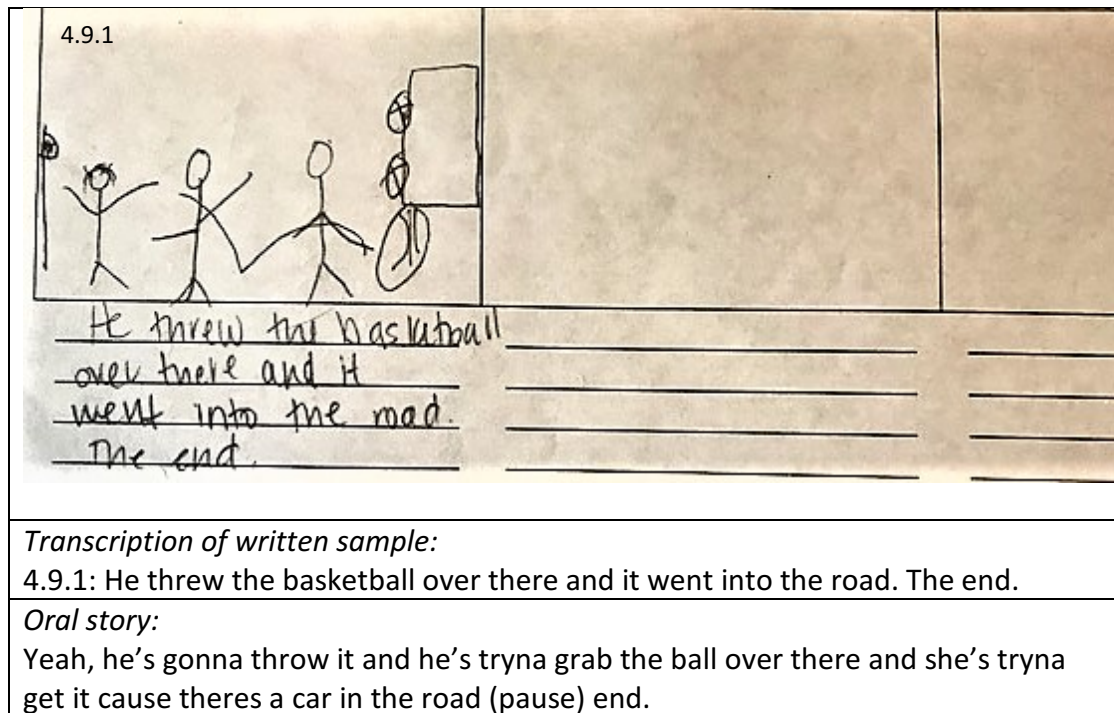 4.9.1
He threw the basketball
over there and it
went into the road.
The end.
Transcription of written sample:
4.9.1: He threw the basketball over there and it went into the road. The end.
Oral story:
Yeah, he’s gonna throw it and he’s tryna grab the ball over there and she’s tryna
get it cause theres a car in the road (pause) end.